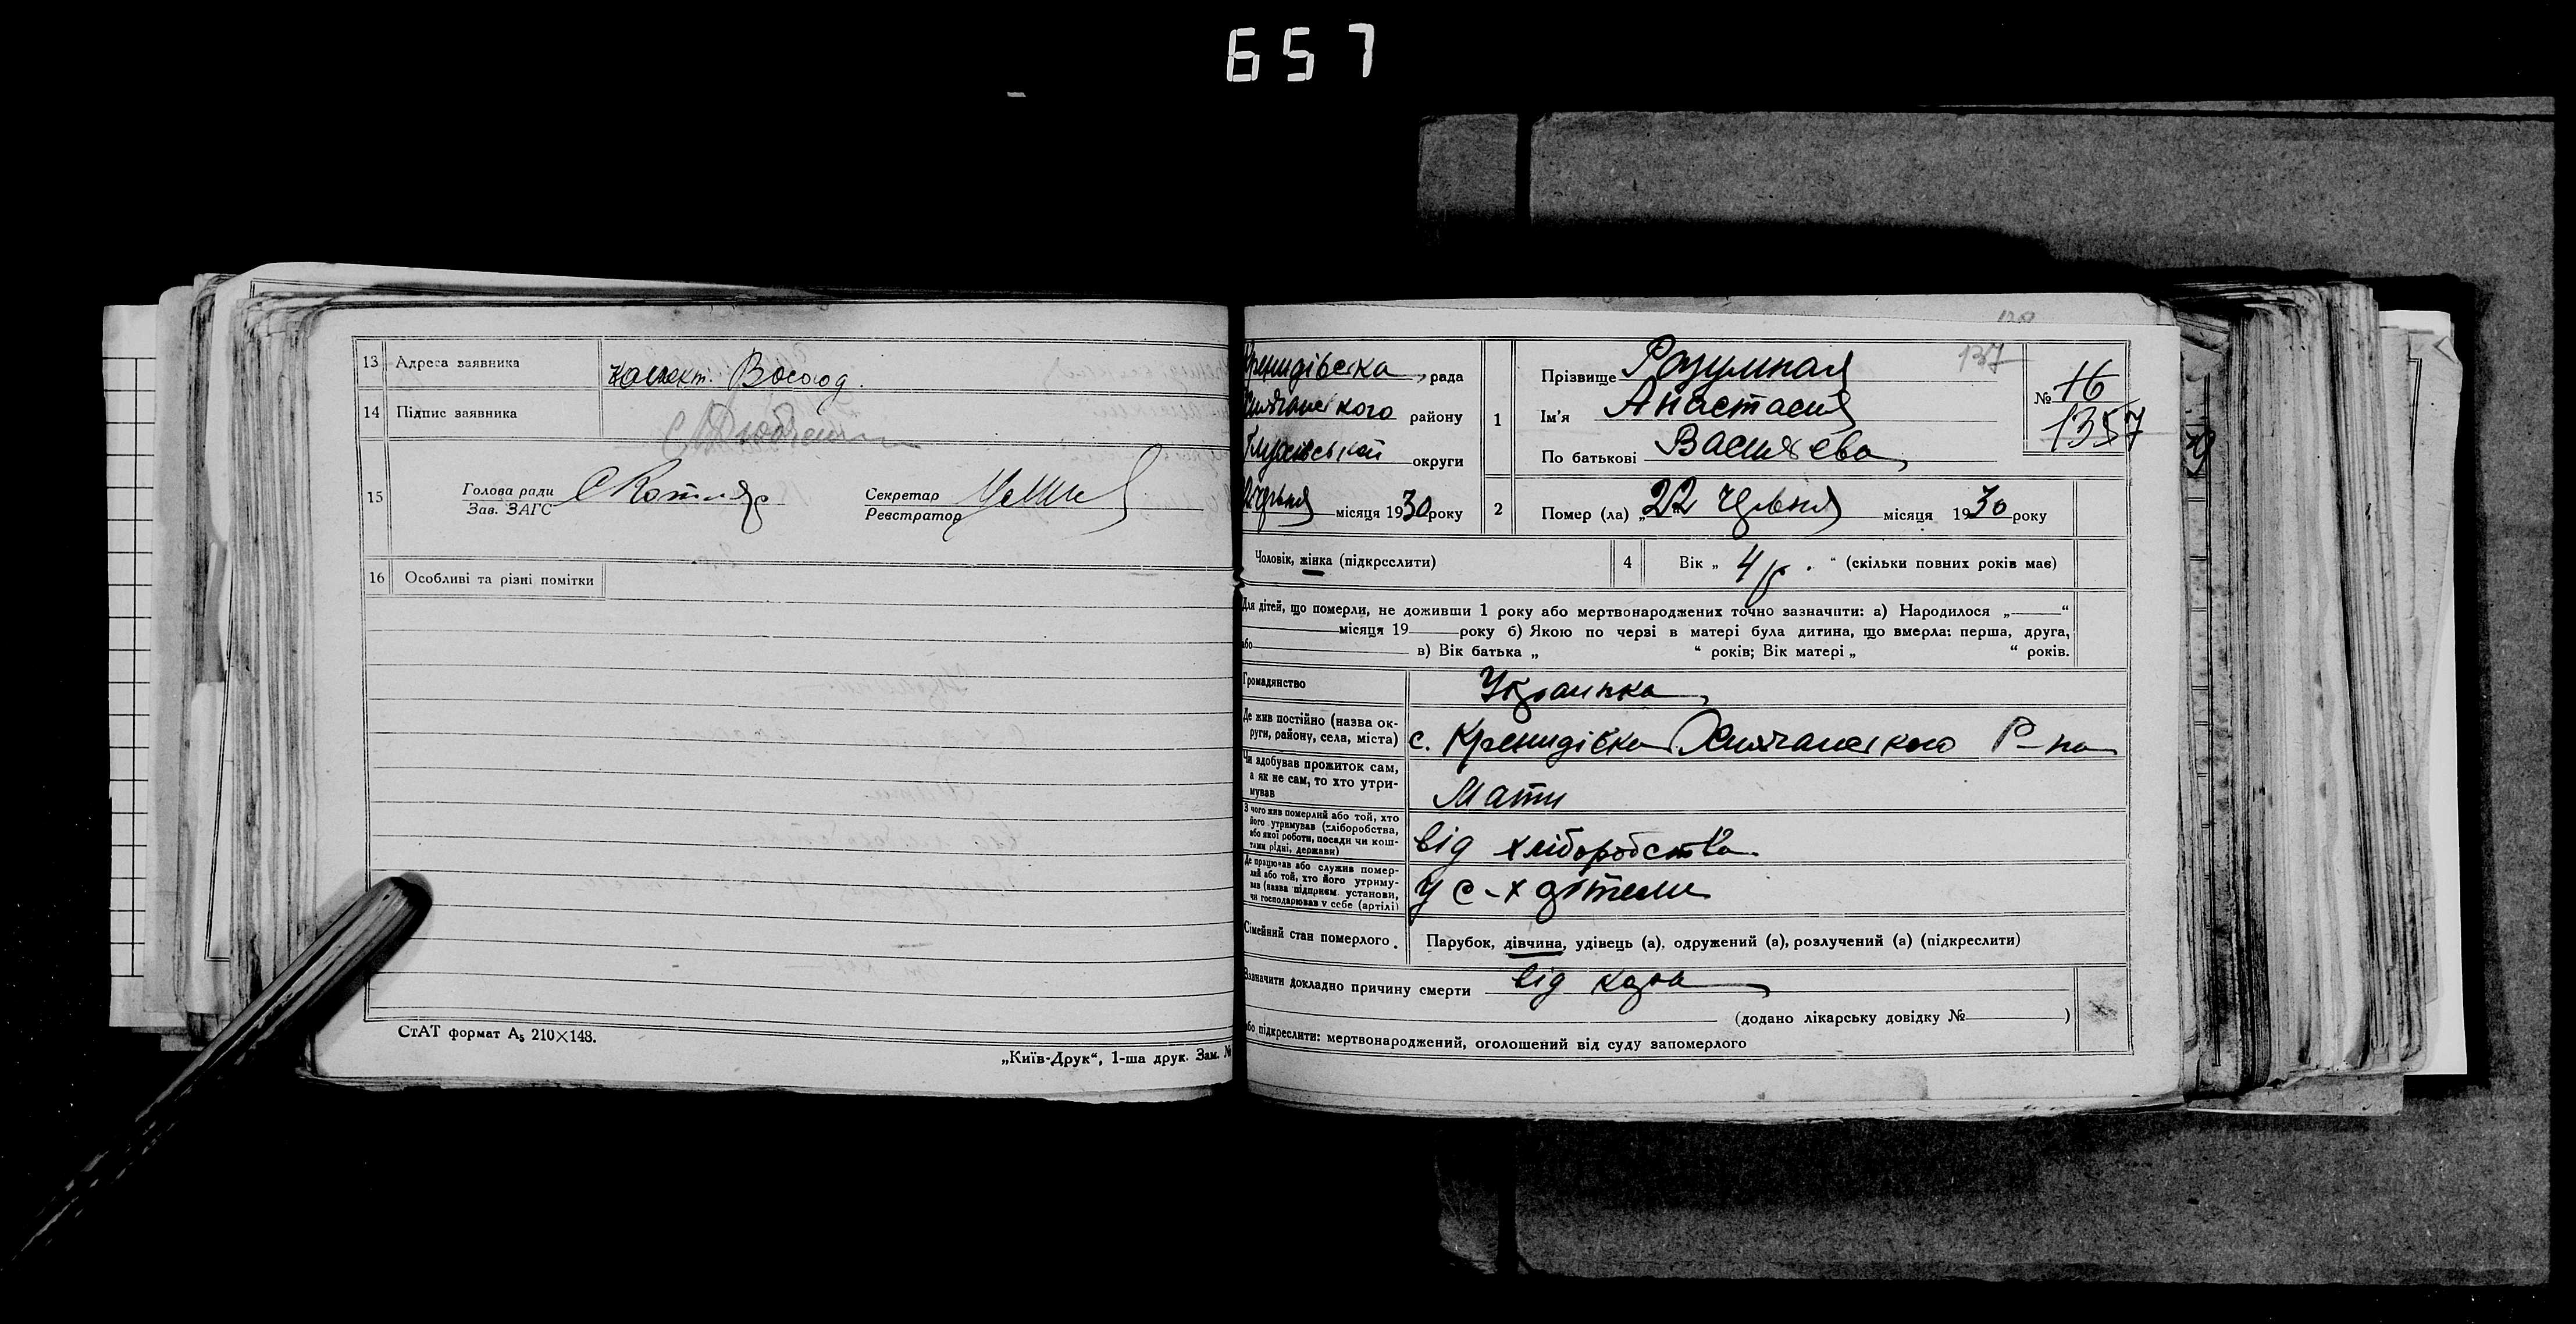 657
13 Адреса заявника Коллект. Восход.
14 Підпис заявника
15 Голова ради
Зав. ЗАГС
Секретар
Реєстратор
16 Особливі та різні помітки
СтАТ формат А₅ 210×148.
„Київ-Друк“, 1-ша друк. Зам. №
Кренидівска, рада
району
Глухівської округи
місяця 1930 року
137
№ 16
1357
1 Прізвище Розумная
Ім'я Анастасия
По батькові Васильева
2 Помер (ла) „22 червня місяця 1930 року
Чоловік, жінка (підкреслити)
4 Вік „ 4 р. “ (скільки повних років має)
Для дітей, що померли, не доживши 1 року або мертвонароджених точно вазначити: а) Народилося „ “
місяця 19 року б) Якою по черві в матері була дитина, що вмерла: перша, друга,
або в) Вік батька „ “ років; Вік матері „ “ років.
Громадянство Украинка
Де жив постійно (назва ок-
руги, району, села, міста) с. Кренидівка Хильчанского Р-на
Чи здобував прожиток сам,
а як не сам, то хто утри-
мував Мати
З чого жив померлий або той, хто
його утримував (хліборобства,
або якої роботи, посади чи кош-
тами рідні, держави) від хліборобства
Де працював або служив помер-
лий або той, хто його утриму-
вав (назва підприєм. установи,
чи господарював у себе (артілі) У с-х
Сімейний стан померлого. Парубок, дівчина, удівець (а), одружений (а), розлучений (а) (підкреслити)
Вазначити докладно причину смерти від
(додано лікарську довідку № )
або підкреслити: мертвонароджений, оголошений від суду запомерлого